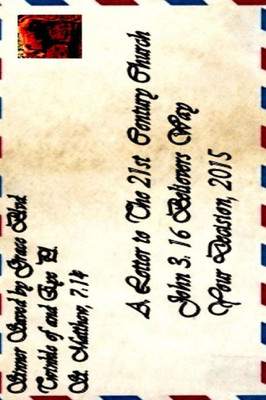 Sinner Saved by Grace Blvd.
Twinkle of and Eye Pl.
St. Matthew, 7.14
A Letter to The 21st Century Church
John 3. 16 Believers Way
Your Decision, 2015